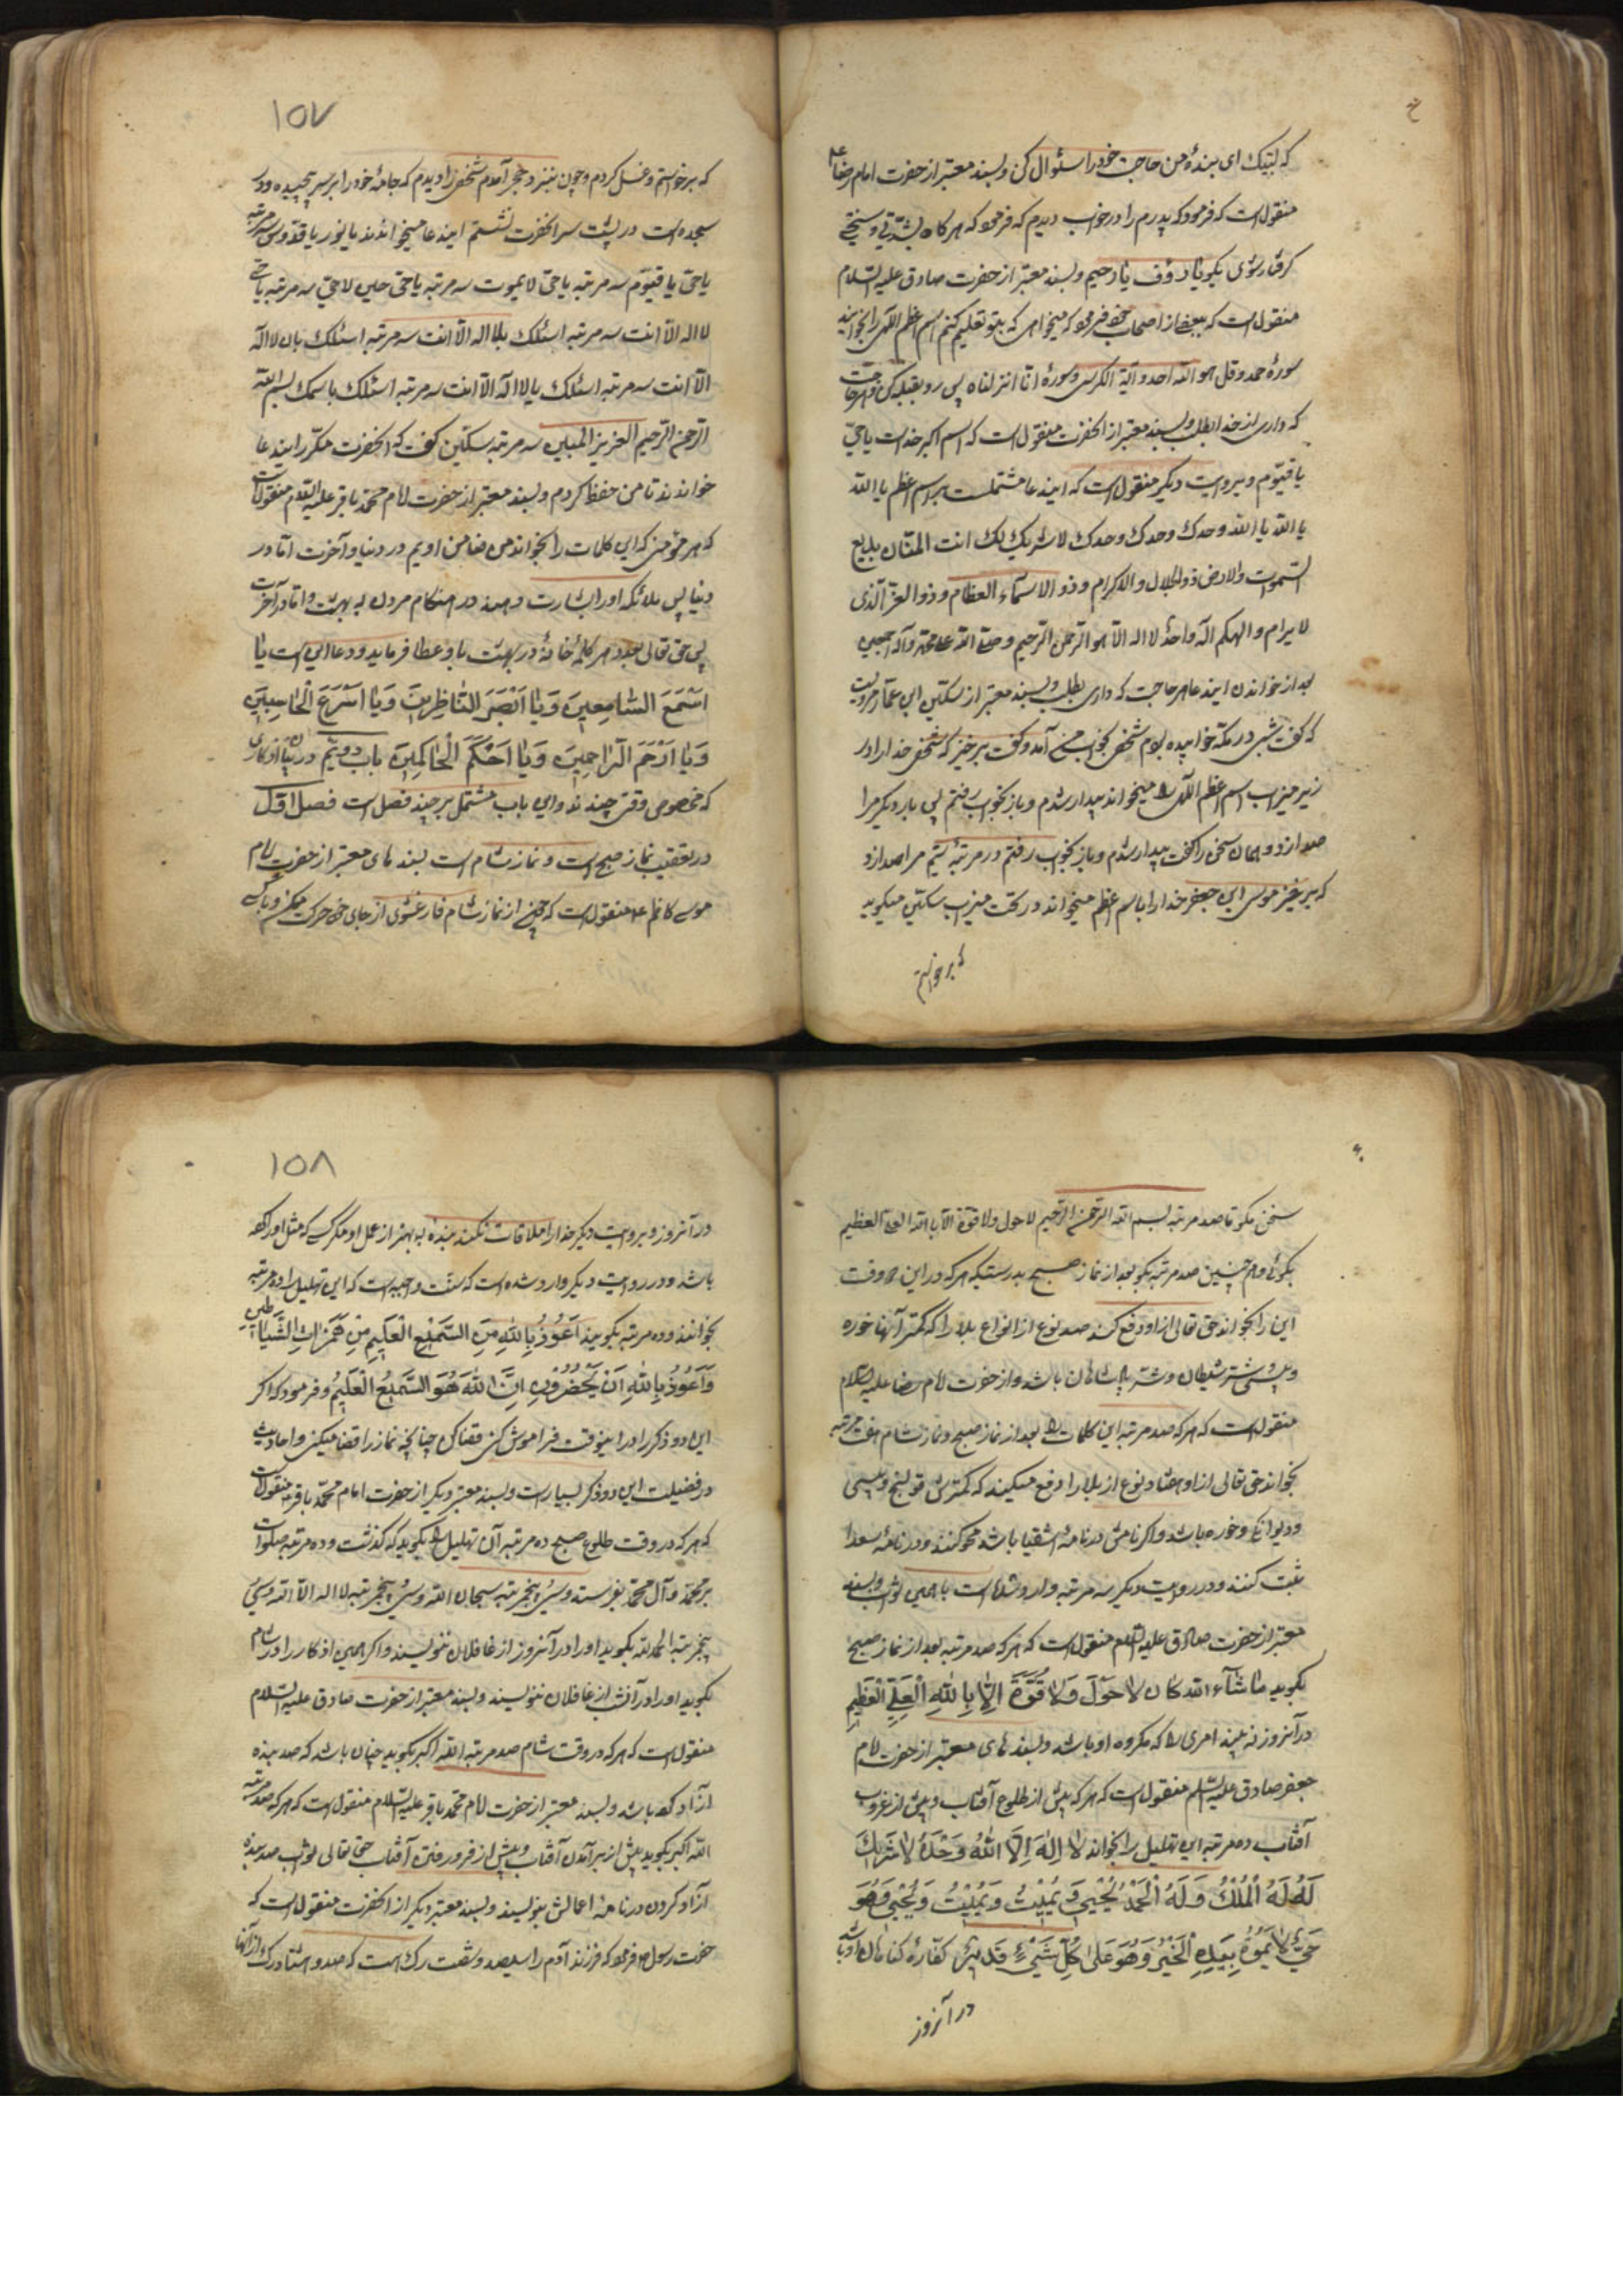 که لبیک ای بندهٔ من حاجت خود را سئوال کن و بسند معتبر از حضرت امام رضا ع
منقول است که فرمود که پدرم را در خواب دیدم که فرمود که هرگاه بشدّتی و سختی
گرفتار شوی بگو یا رؤف یا رحیم و بسند معتبر از حضرت صادق علیه السلام
منقول است که ببعضی از اصحاب خود فرمود که میخواهی که بتو تعلیم کنم اسم اعظم الهی را بخوانید
سورهٔ حمد و قل هو الله احد و آیة الکرسی و سورهٔ انا انزلناه پس رو بقبله کن و هر حاجت
که داری از خدا بطلب و بسند معتبر از آنحضرت منقول است که اسم اکبر خداست یا حیّ
یا قیّوم و بروایت دیگر منقول است که این دعا مشتملست بر اسم اعظم یا الله
یا الله یا الله وحدك وحدك وحدك لا شریك لك انت المنّان بدیع
السموات والارض ذو الجلال والاکرام و ذو الاسمآء العظام و ذو العزّ الّذی
لا یرام و الهکم اله واحد لا اله الّا هو الرّحمن الرّحیم و صلی الله علی محمد وآله اجمعین
بعد از خواندن این دعا هر حاجت که داری بطلب و بسند معتبر از سکین ابن عمار مرویست
که گفت شبی در مکّه خوابیده بودم شخصی بخواب من آمد و گفت برخیز که شخصی خدا را در
زیر میزاب اسم اعظم الهی را میخواند بیدار شدم و باز بخواب رفتم پس بار دیگر مرا
صدا زد و همان سخن را گفت بیدار شدم و باز بخواب رفتم در مرتبهٔ سیّم مرا صدا زد
که برخیز موسی ابن جعفر خدا را باسم اعظم میخواند در تحت میزاب سکین میگوید
که برخواستم
۱۵۷
که برخواستم و غسل کردم و چون بنزد حجر آمدم شخصی را دیدم که جامهٔ خود را بر سر پیچیده و در
سجده است در پشت سر آنحضرت نشستم این دعا میخواندند یا نور یا قدّوس سه مرتبه
یا حیّ یا قیّوم سه مرتبه یا حیّ لا یموت سه مرتبه یا حیّ حین لا حیّ سه مرتبه یا حیّ
لا اله الّا انت سه مرتبه اسئلك بلا اله الّا انت سه مرتبه اسئلك بان لا اله
الّا انت سه مرتبه اسئلك یا لا اله الّا انت سه مرتبه اسئلك باسمك بسم الله
الرّحمن الرّحیم العزیز المبین سه مرتبه سکین گفت که آنحضرت مکرّر این دعا
خواندند تا من حفظ کردم و بسند معتبر از حضرت امام محمّد باقر علیه السلام منقولست
که هر مؤمنی که این کلمات را بخواند من ضامن اویم در دنیا و آخرت امّا در
دنیا پس ملائکه او را بشارت دهند در هنگام مردن به بهشت و امّا در آخرت
پس حق تعالی بعدد هر کلمهٔ خانهٔ در بهشت باو عطا فرماید و دعا این است یا
اَسْمَعَ السّامِعینَ وَ یا اَبْصَرَ النّاظِرینَ وَ یا اَسْرَعَ الْحاسِبینَ
وَ یا اَرْحَمَ الرّاحِمینَ وَ یا اَحْکَمَ الْحاکِمینَ باب دویّم در بیان اذکاری
که مخصوص وقتی چندند و این باب مشتمل بر چند فصل است فصل اوّل
در تعقیب نماز صبح است و نماز شام است بسندهای معتبر از حضرت امام
موسی کاظم ع منقول است که چون از نماز شام فارغ شوی از جای خود حرکت مکن و باکسی
سخن مگو تا صد مرتبه بسم الله الرّحمن الرّحیم لا حول ولا قوّة الّا بالله العلیّ العظیم
بگوئی و همچنین صد مرتبه بگو بعد از نماز صبح بدرستیکه هر که در این دو وقت
این را بخواند حق تعالی از او دفع کند صد نوع از انواع بلا را که کمتر آنها خوره
و پیسی و شرّ شیطان و شرّ پادشاهان باشد و از حضرت امام رضا علیه السلام
منقول است که هر که صد مرتبه این کلمات را بعد از نماز صبح و نماز شام هفت مرتبه
بخواند حق تعالی از او هفتاد نوع از بلا را دفع میکند که کمترش قولنج و پیسی
و دیوانگی و خوره باشد و اگر نامش در نامهٔ اشقیا باشد محو کنند و در نامهٔ سعدا
ثبت کنند و در روایت دیگر سه مرتبه وارد شده است با همین ثواب و بسند
معتبر از حضرت صادق علیه السلام منقول است که هر که صد مرتبه بعد از نماز صبح
بگوید ما شآء الله کان لا حَوْلَ وَلا قُوَّةَ اِلّا بِاللهِ الْعَلِیِّ الْعَظیمِ
در آنروز نه بیند امری را که مکروه او باشد و بسندهای معتبر از حضرت امام
جعفر صادق علیه السلام منقول است که هر که پیش از طلوع آفتاب و پیش از غروب
آفتاب ده مرتبه این تهلیل را بخواند لا اِلهَ اِلّا اللهُ وَحْدَهُ لا شَریكَ
لَهُ لَهُ الْمُلْكُ وَ لَهُ الْحَمْدُ یُحْیی وَ یُمیتُ وَ یُمیتُ وَ یُحْیی وَ هُوَ
حَیٌّ لا یَمُوتُ بِیَدِهِ الْخَیْرُ وَ هُوَ عَلی کُلِّ شَیْءٍ قَدیرٌ کفّارهٔ گناهان او باشد
در آنروز
۱۵۸
در آنروز و بروایت دیگر خدا را ملاقات نکند بندهٔ به بهتر از عمل او مگر کسی که مثل او کرده
باشد و در روایت دیگر وارد شده است که سنّت واجبه است که این تهلیل را ده مرتبه
بخوانند و ده مرتبه بگویند اَعُوذُ بِاللهِ مِنَ السَّمیعِ الْعَلیمِ مِنْ هَمَزاتِ الشَّیاطینِ
وَ اَعُوذُ بِاللهِ اَنْ یَحْضُرُونِ اِنَّ اللهَ هُوَ السَّمیعُ الْعَلیمُ و فرمود که اگر
این دو ذکر را در اینوقت فراموش کنی قضا کن چنانچه نماز را قضا میکنی و احادیث
در فضیلت این دو ذکر بسیارست و بسند معتبر دیگر از حضرت امام محمّد باقر ع منقولست
که هر که در وقت طلوع صبح ده مرتبه آن تهلیل را بگوید که گذشت و ده مرتبه صلوات
بر محمّد و آل محمّد بفرستد و سی و پنجمرتبه سبحان الله و سی و پنجمرتبه لا اله الّا الله و سی و
پنجمرتبه الحمد لله بگوید او را در آنروز از غافلان ننویسند و اگر همین اذکار را در شام
بگوید او را در آنشب از غافلان ننویسند و بسند معتبر از حضرت صادق علیه السلام
منقول است که هر که در وقت شام صد مرتبه الله اکبر بگوید چنان باشد که صد بنده
آزاد کرده باشد و بسند معتبر از حضرت امام محمّد باقر علیه السلام منقول است که هر که صد مرتبه
الله اکبر بگوید پیش از برآمدن آفتاب و پیش از فرو رفتن آفتاب حق تعالی ثواب صد بنده
آزاد کردن در نامهٔ اعمالش بنویسند و بسند معتبر دیگر از آنحضرت منقول است که
حضرت رسول ص فرمود که فرزند آدم را سیصد و شصت رگ است که صد و هشتاد رگ از آنها